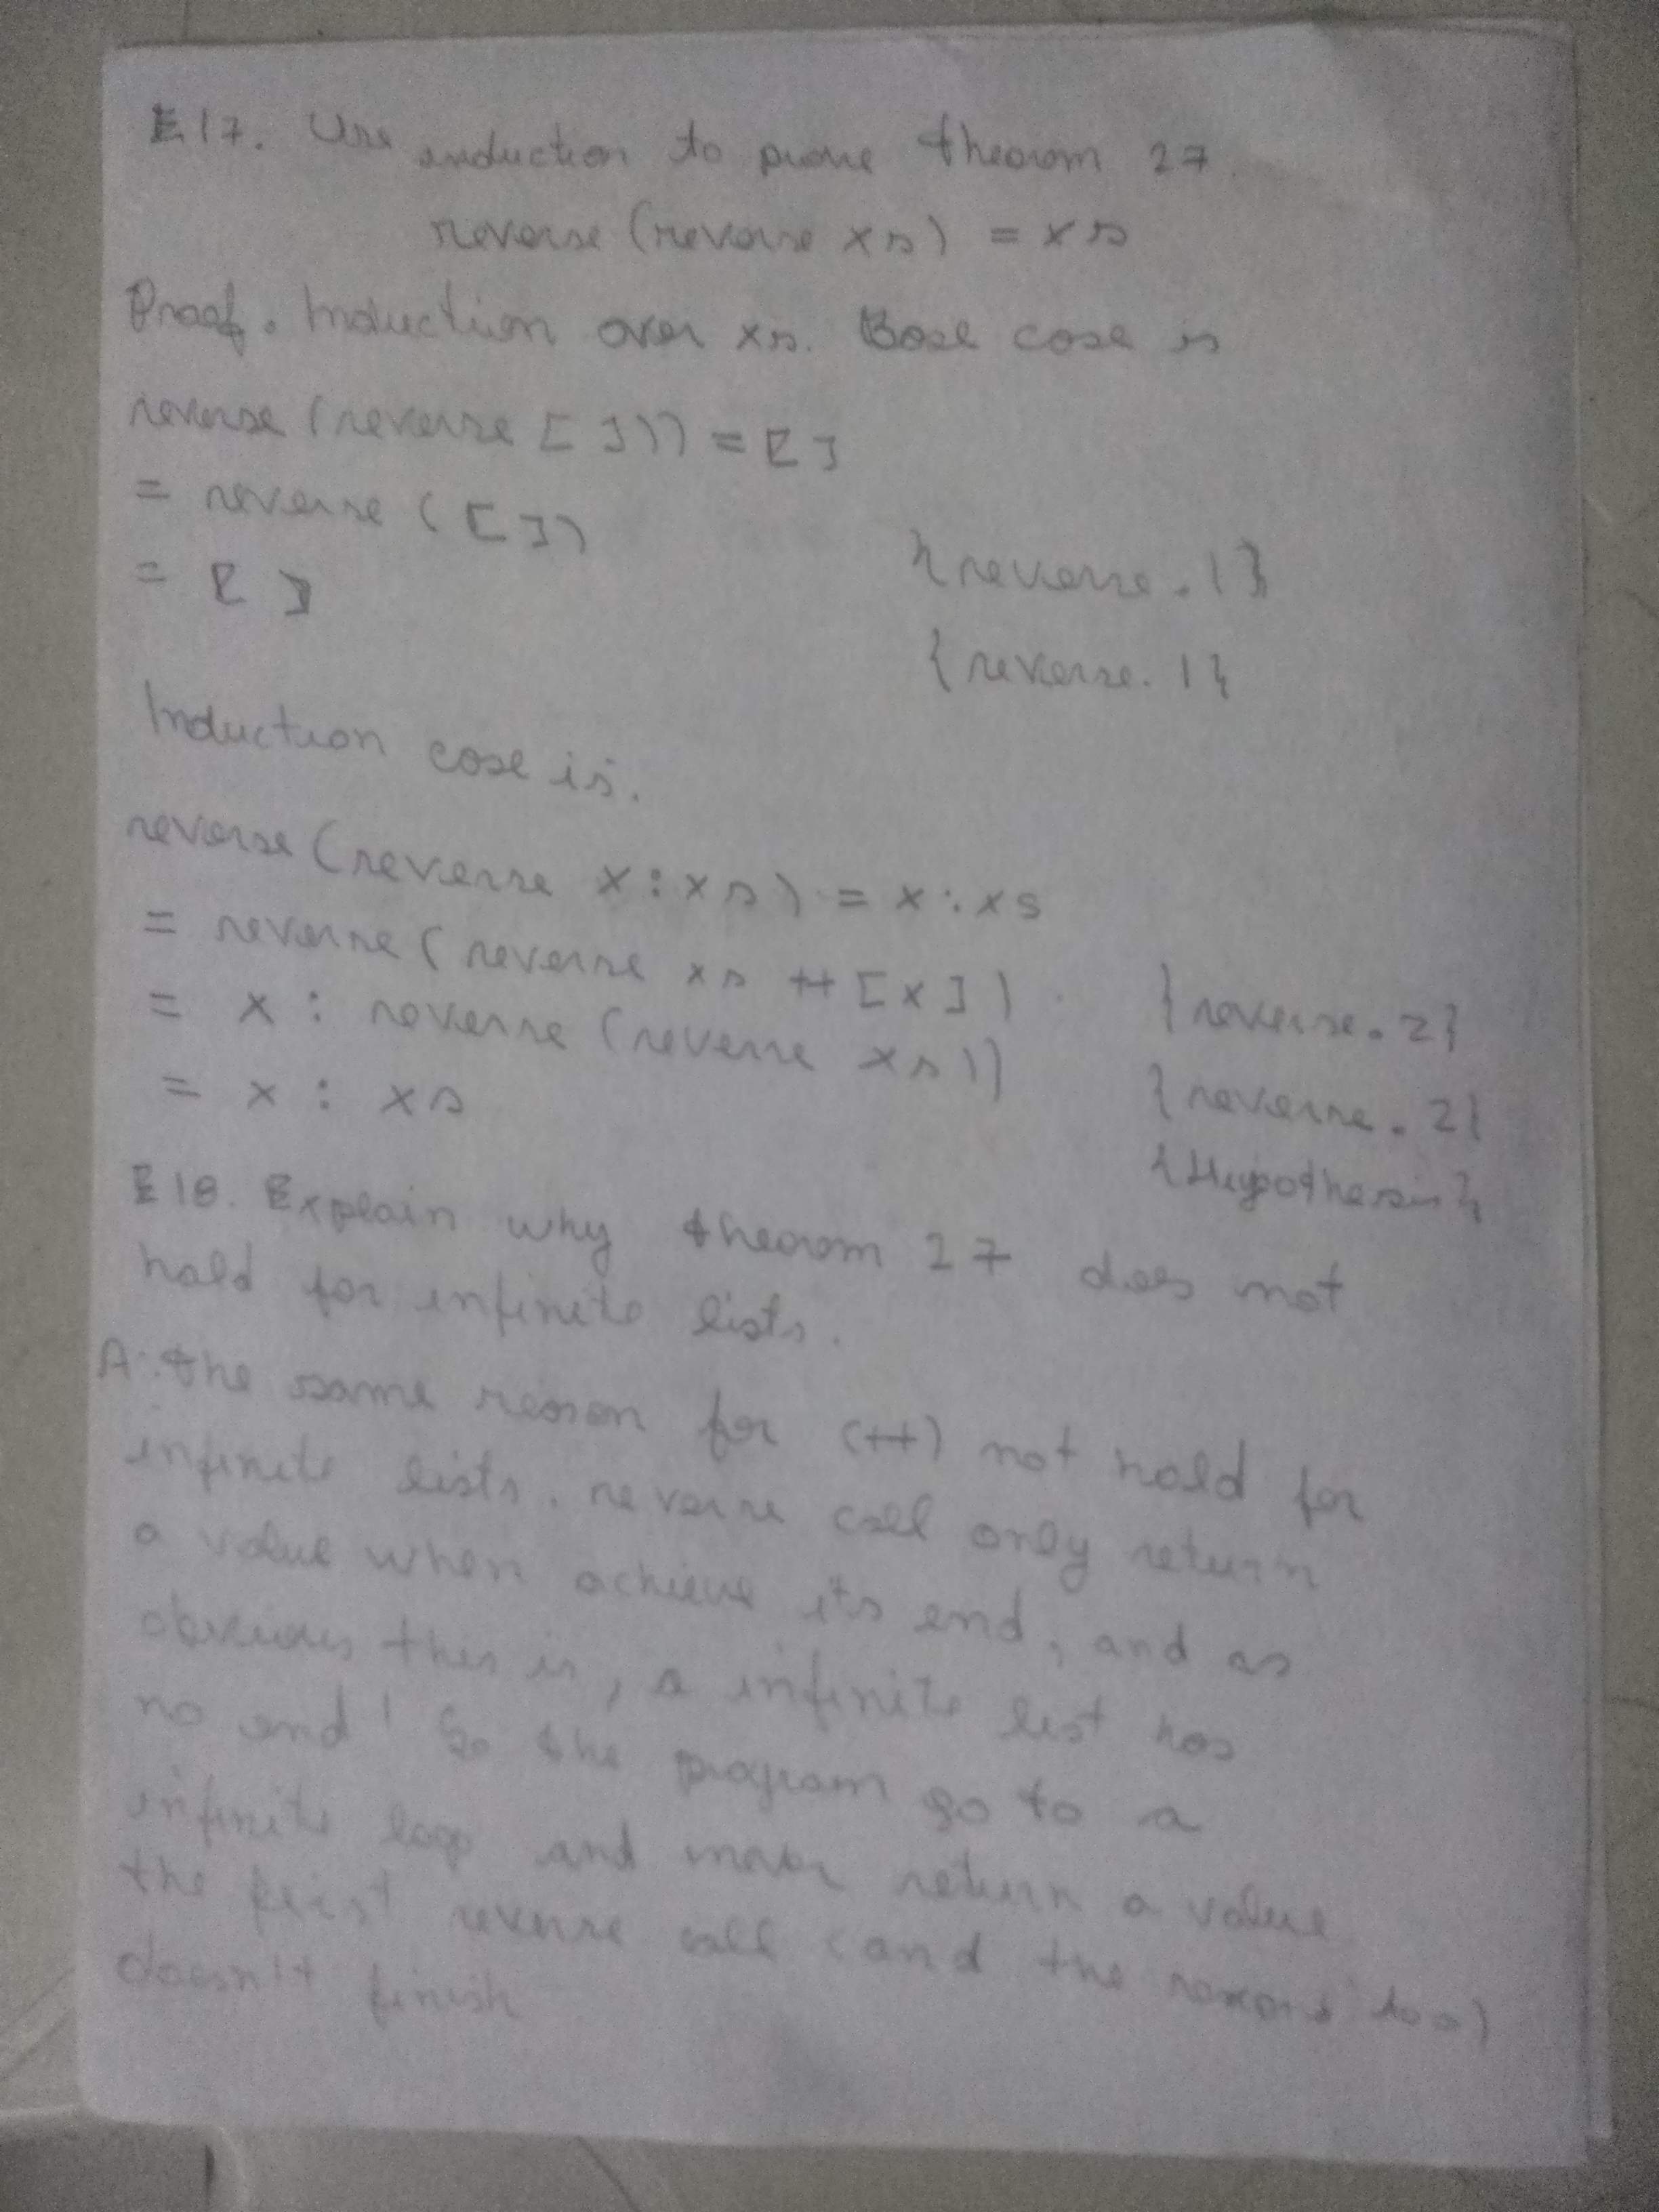 E17. Use induction to prove theorom 27.
reverse (reverse xs) = xs
Proof. Induction over xs. Base case is
reverse (reverse [ ])) = [ ]
= reverse ([ ]) {reverse.1}
= [ ] {reverse.1}
Induction case is.
reverse (reverse x:xs) = x:xs
= reverse (reverse xs ++ [x]) {reverse.2}
= x : reverse (reverse xs)) {reverse.2}
= x : xs {Hypothesis}
E18. Explain why theorom 27 does not
hold for infinite lists.
A: the same reason for (++) not hold for
infinite lists. reverse call only return
a value when achieve its end, and as
obvious this is, a infinite list has
no end! So the program go to a
infinite loop and return a value
the first reverse call (and the too)
doesn't finish